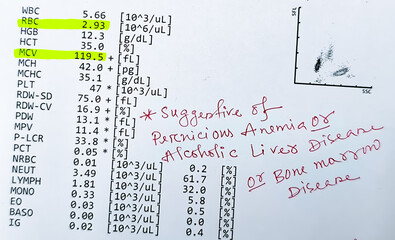 WBC 5.66 [10^3/uL]
RBC 2.93 [10^6/uL]
HGB 12.3 [g/dL]
HCT 35.0 [%]
MCV 119.5 + [fL]
MCH 42.0 + [pg]
MCHC 35.1 [g/dL]
PLT 47 * [10^3/uL]
RDW-SD 75.0 + [fL]
RDW-CV 16.9 + [%]
PDW 13.1 * [fL]
MPV 11.4 * [fL]
P-LCR 33.8 * [%]
PCT 0.05 * [%]
NRBC 0.01 [10^3/uL] 0.2 [%]
NEUT 3.49 [10^3/uL] 61.7 [%]
LYMPH 1.81 [10^3/uL] 32.0 [%]
MONO 0.33 [10^3/uL] 5.8 [%]
EO 0.03 [10^3/uL] 0.5 [%]
BASO 0.00 [10^3/uL] 0.0 [%]
IG 0.02 [10^3/uL] 0.4 [%]
SSC
* Suggestive of
Pernicious Anemia or
Alcoholic Liver Disease
or Bone marrow
Disease